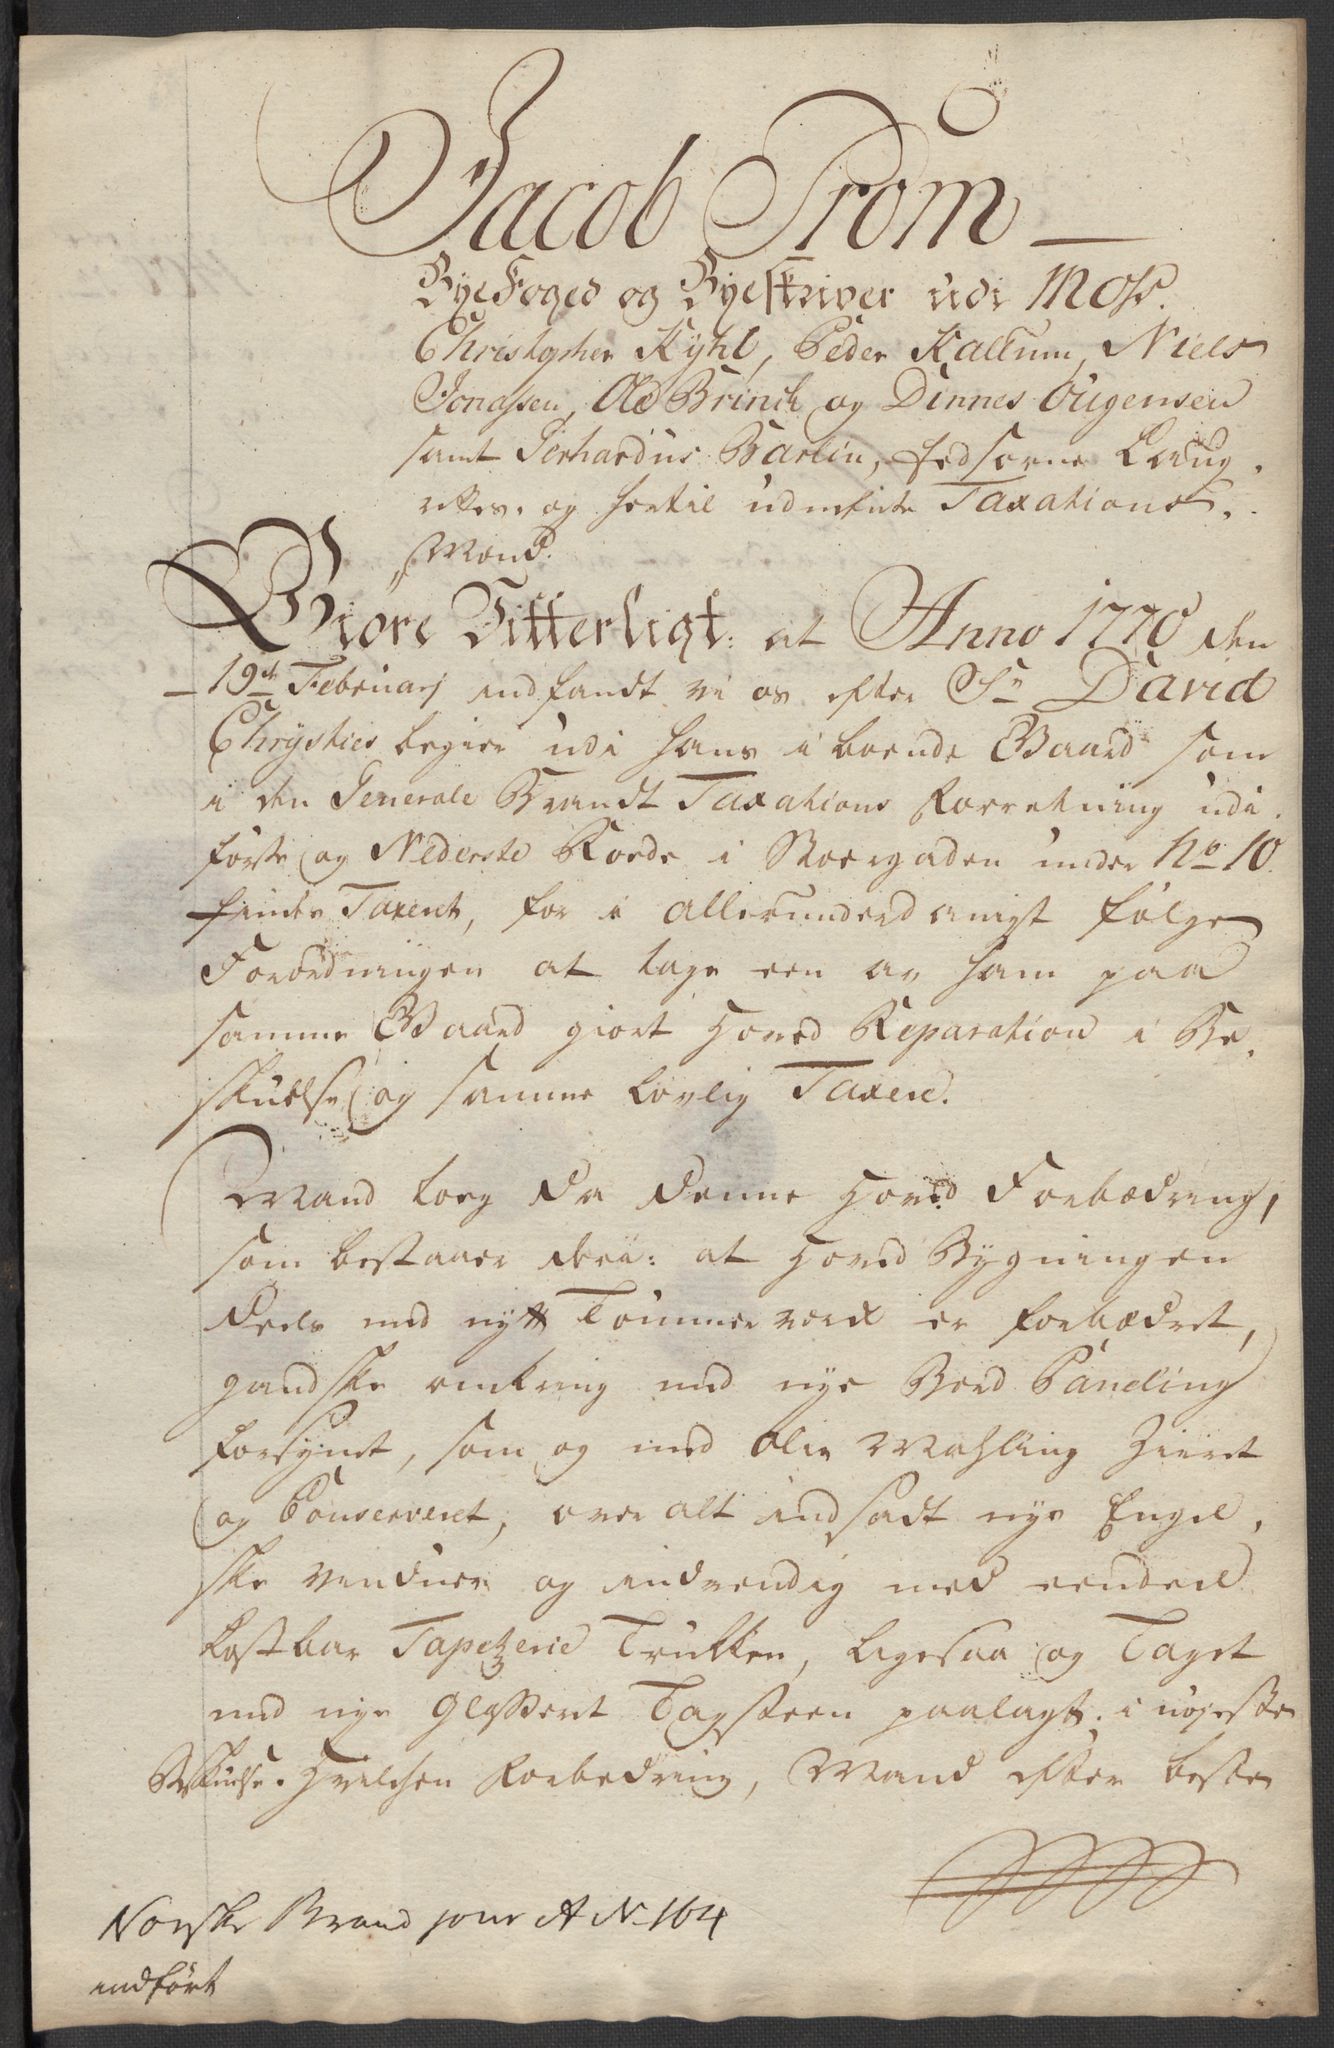 Jacob Trom
ByeFoged og Byeskriver udi Moss.
Christopher Kyhl, Peder Kallum, Niels
Jonassen, Ole Brinck og Dinnes Ougensen
samt Gerhardus Barlin, Eedsorne Laug-
rettes- og hertil udmelte Taxations-
Mænd.
Giøre Vitterligt: at Anno 1770 den
19de Februarj indfandt vi os efter Sr. David
Chrysties begier udi hans iboende Gaard som
i den Generale Brandt Taxations Forretning udi
første og Nederste Roede i Stoergaden under No. 10
findes Taxeret, for i allerunderdanigst følge
Forordningen at tage een av ham paa
samme Gaard giort Hoved Reparation i Be-
skuelse og samme lovlig Taxere.
Mand toeg da denne Hoved Forbædring,
som bestaaer deri: at Hoved Bygningen
deels med nytt Tømmer værk er forbædret,
gandske omkring med nye Bord Paneling
forsynet, som og med Olie Mahling Ziiret
og Conserveret, over alt indsadt nye Engel-
ske Vinduer og indvendig med eendeel
kostbar Tapetzerie Trukken, ligesaa og Taget
med nye Glasseret Tagsteen paalagt, i nøjeste
Beskuelse. Hvilchen Forbedring, Mand efter beste
Norske Brand jour A No 164
indført